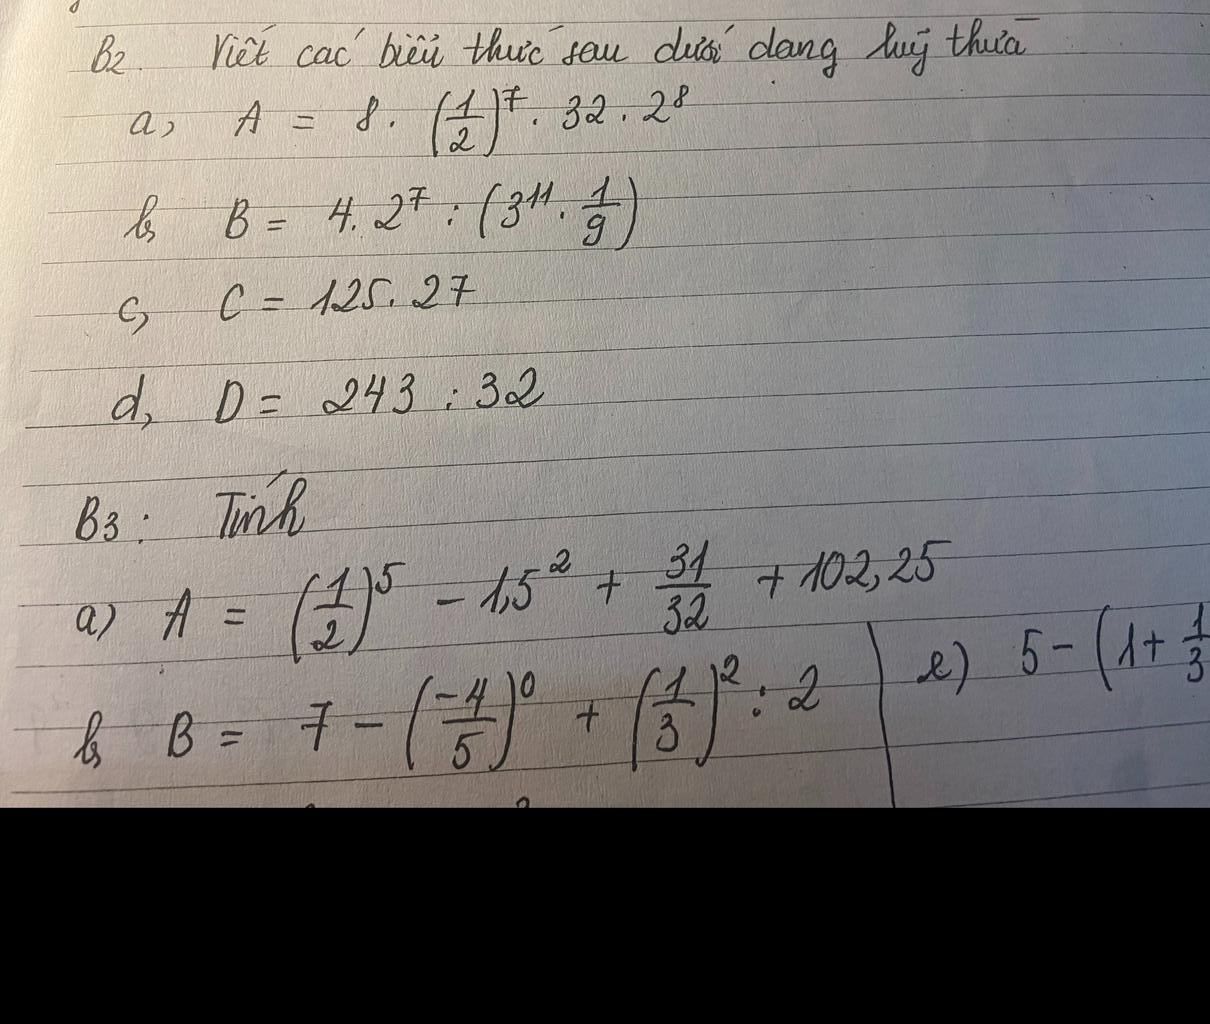 B2. Viết các biểu thức sau dưới dạng luỹ thừa
a, A = 8 . (1/2)^7 . 32 . 2^8
b, B = 4. 2^7 : (3^11 . 1/9)
c, C = 125. 27
d, D = 243 : 32
B3 : Tính
a) A = (1/2)^5 - 1,5^2 + 31/32 + 102,25
b, B = 7 - (-4/5)^0 + (1/3)^2 : 2
e) 5 - (1 + 1/3